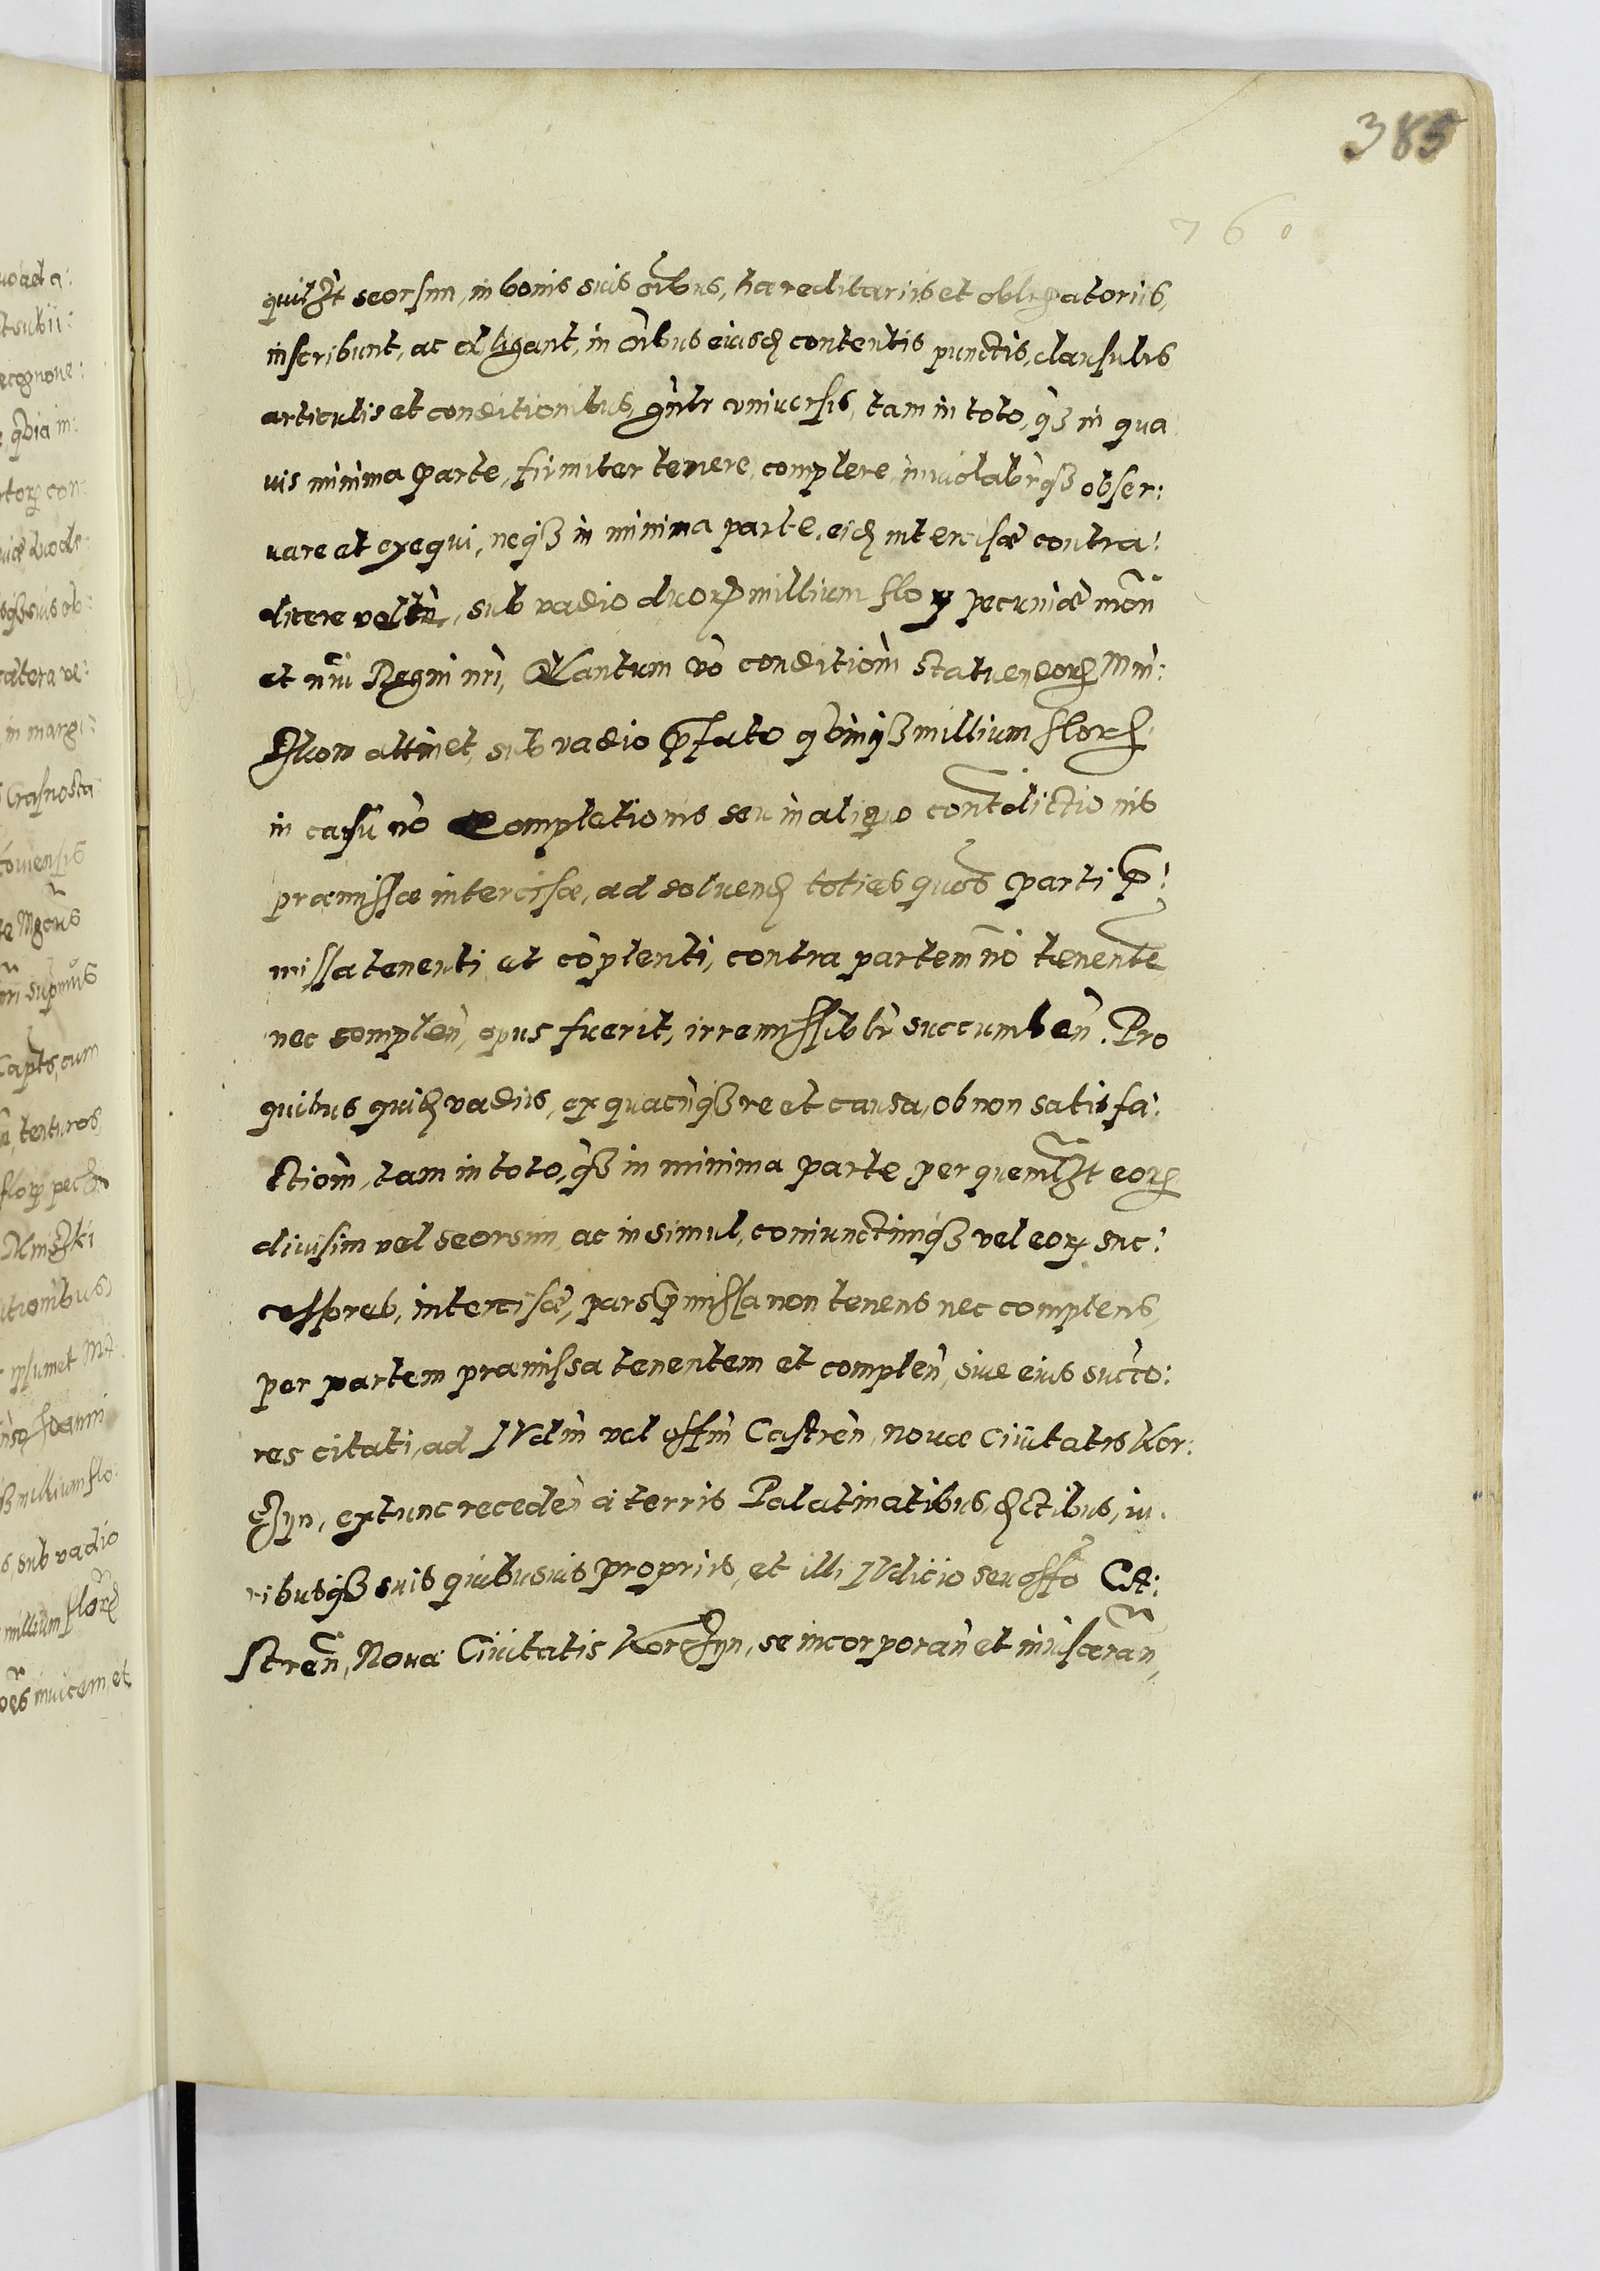 385
760
quilꝫt seorsim, in bonis suis oībus, hæreditariis et obligatoriis,
inscribunt, ac obligant, in oībus eiusd contentis punctis, clausulis
articulis et conditionibus, gnlr vniuersis, tam in toto, qꝫ in qua
uis minima parte, firmiter tenere, complere, inuiolabrqꝫ obser:
uare et exequi, neqꝫ in minima parte, eid intercisæ contra:
dicere veltn, sub vadio duorꝝ millium floꝝ pecuniæ mon̄
et nri Regni nri, Quantum vo condition̄ statuendorꝝ
attinet, sub vadio p̄fato millium florꝝ
in casu no completionis seu in aliquo contradictionis
præmissæ intercisæ, ad soluend toties quos parti p̄:
missa tenenti et coplenti, contra partem no tenente
nec complen̄, opus fuerit, irremissiblr succumben̄. Pro
quibus quid vadiis, ex quacunqꝫ re et causa, ob non satisfa:
ction̄, tam in toto, qꝫ in minima parte, per quemlꝫt eorꝝ
diuisim vel seorsim, ac insimul, coniunctimqꝫ vel eorꝝ suc:
cessores, intercisæ, pars p̄missa non tenens nec complens,
per partem præmissa tenentem et complen̄, siue eius succo:
res citati, ad Iudm vel offm Castren̄, nouæ Ciuitatis Kor:
czyn, extunc receden̄ a terris Palatinatibus, dictibus, iu.
ribusqꝫ suis quibusuis propriis, et illi Iudicio seu offo Ca:
stren̄, Nouæ Ciuitatis Korczyn, se incorporan̄ et inuisceran̄,